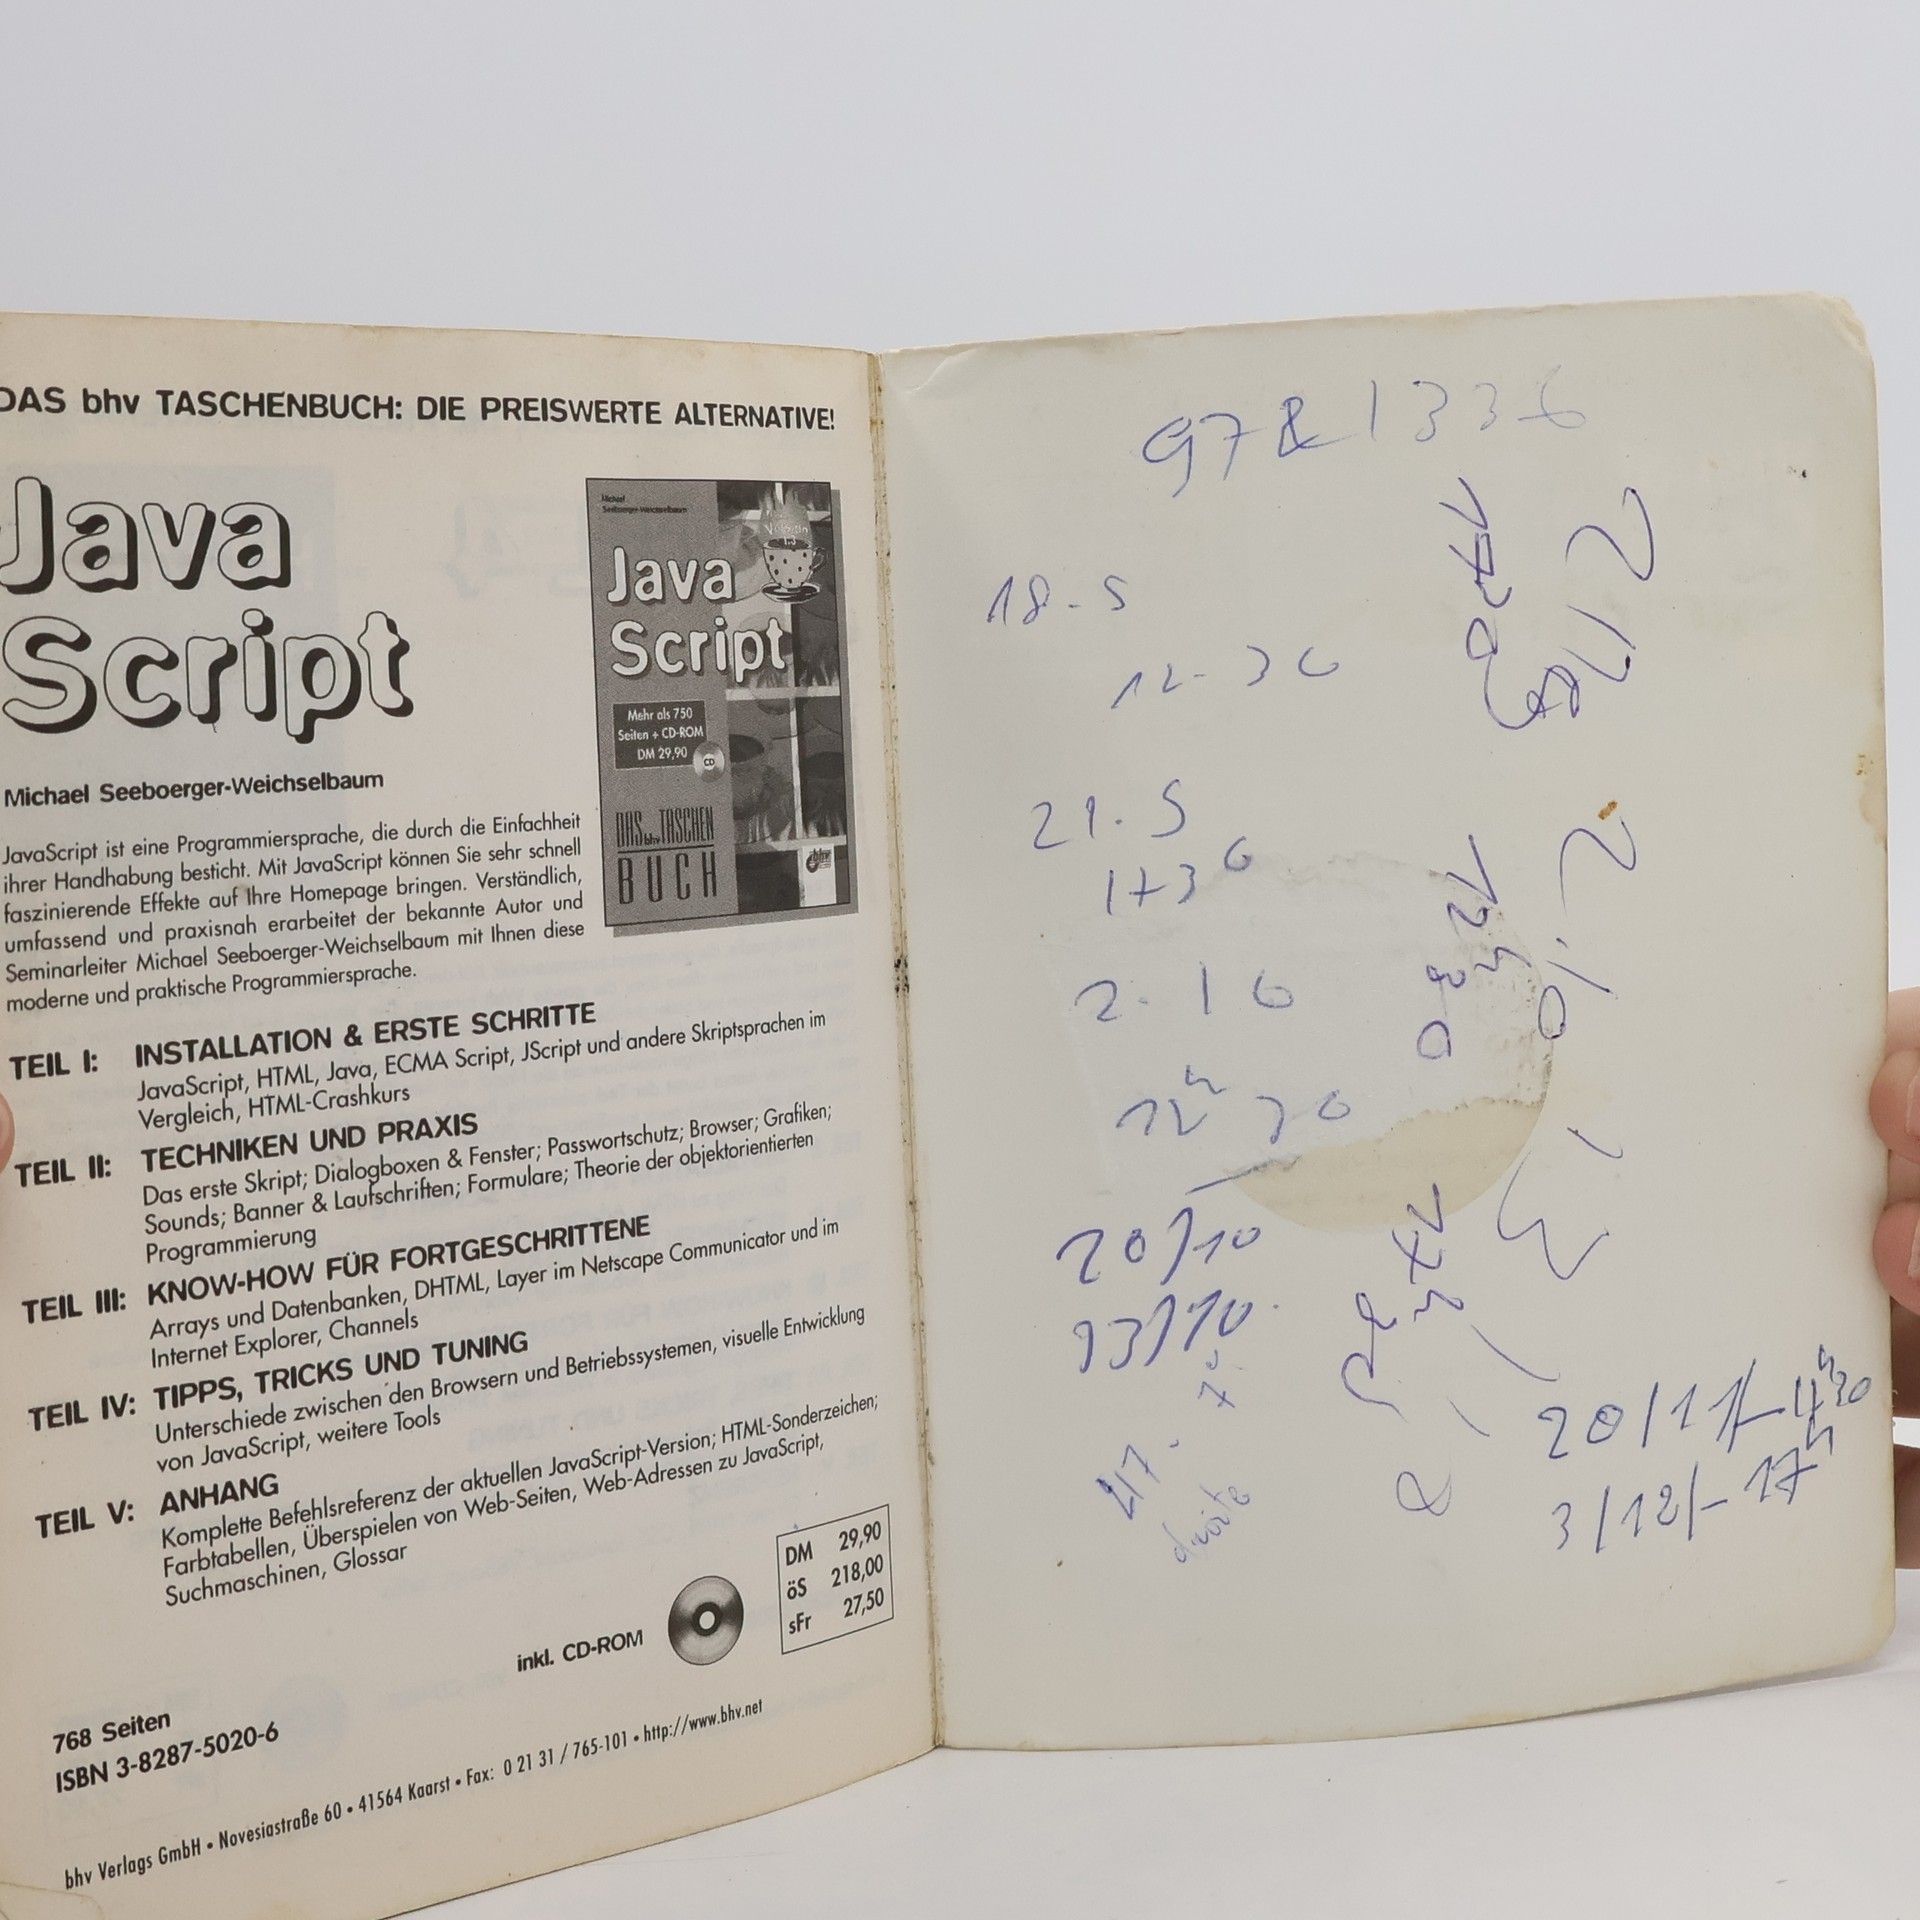 DAS bhv TASCHENBUCH: DIE PREISWERTE ALTERNATIVE!
Java
Script
Michael Seeboerger-Weichselbaum
JavaScript ist eine Programmiersprache, die durch die Einfachheit
ihrer Handhabung besticht. Mit JavaScript können Sie sehr schnell
faszinierende Effekte auf Ihre Homepage bringen. Verständlich,
umfassend und praxisnah erarbeitet der bekannte Autor und
Seminarleiter Michael Seeboerger-Weichselbaum mit Ihnen diese
moderne und praktische Programmiersprache.
Michael
Seeboerger-Weichselbaum
Java
Script
Mehr als 750
Seiten + CD-ROM
DM 29,90
CD
DAS bhv TASCHEN
BUCH
bhv
TEIL I: INSTALLATION & ERSTE SCHRITTE
JavaScript, HTML, Java, ECMA Script, JScript und andere Skriptsprachen im
Vergleich, HTML-Crashkurs
TEIL II: TECHNIKEN UND PRAXIS
Das erste Skript; Dialogboxen & Fenster; Passwortschutz; Browser; Grafiken;
Sounds; Banner & Laufschriften; Formulare; Theorie der objektorientierten
Programmierung
TEIL III: KNOW-HOW FÜR FORTGESCHRITTENE
Arrays und Datenbanken, DHTML, Layer im Netscape Communicator und im
Internet Explorer, Channels
TEIL IV: TIPPS, TRICKS UND TUNING
Unterschiede zwischen den Browsern und Betriebssystemen, visuelle Entwicklung
von JavaScript, weitere Tools
TEIL V: ANHANG
Komplette Befehlsreferenz der aktuellen JavaScript-Version; HTML-Sonderzeichen;
Farbtabellen, Überspielen von Web-Seiten, Web-Adressen zu JavaScript,
Suchmaschinen, Glossar
inkl. CD-ROM
DM 29,90
öS 218,00
sFr 27,50
768 Seiten
ISBN 3-8287-5020-6
bhv Verlags GmbH • Novesiastraße 60 • 41564 Kaarst • Fax: 0 21 31 / 765-101 • http://www.bhv.net
18.5
12.30
21.5
2.10
12h 30
20/10
23/10.
20/11/-
3/12/- 17h